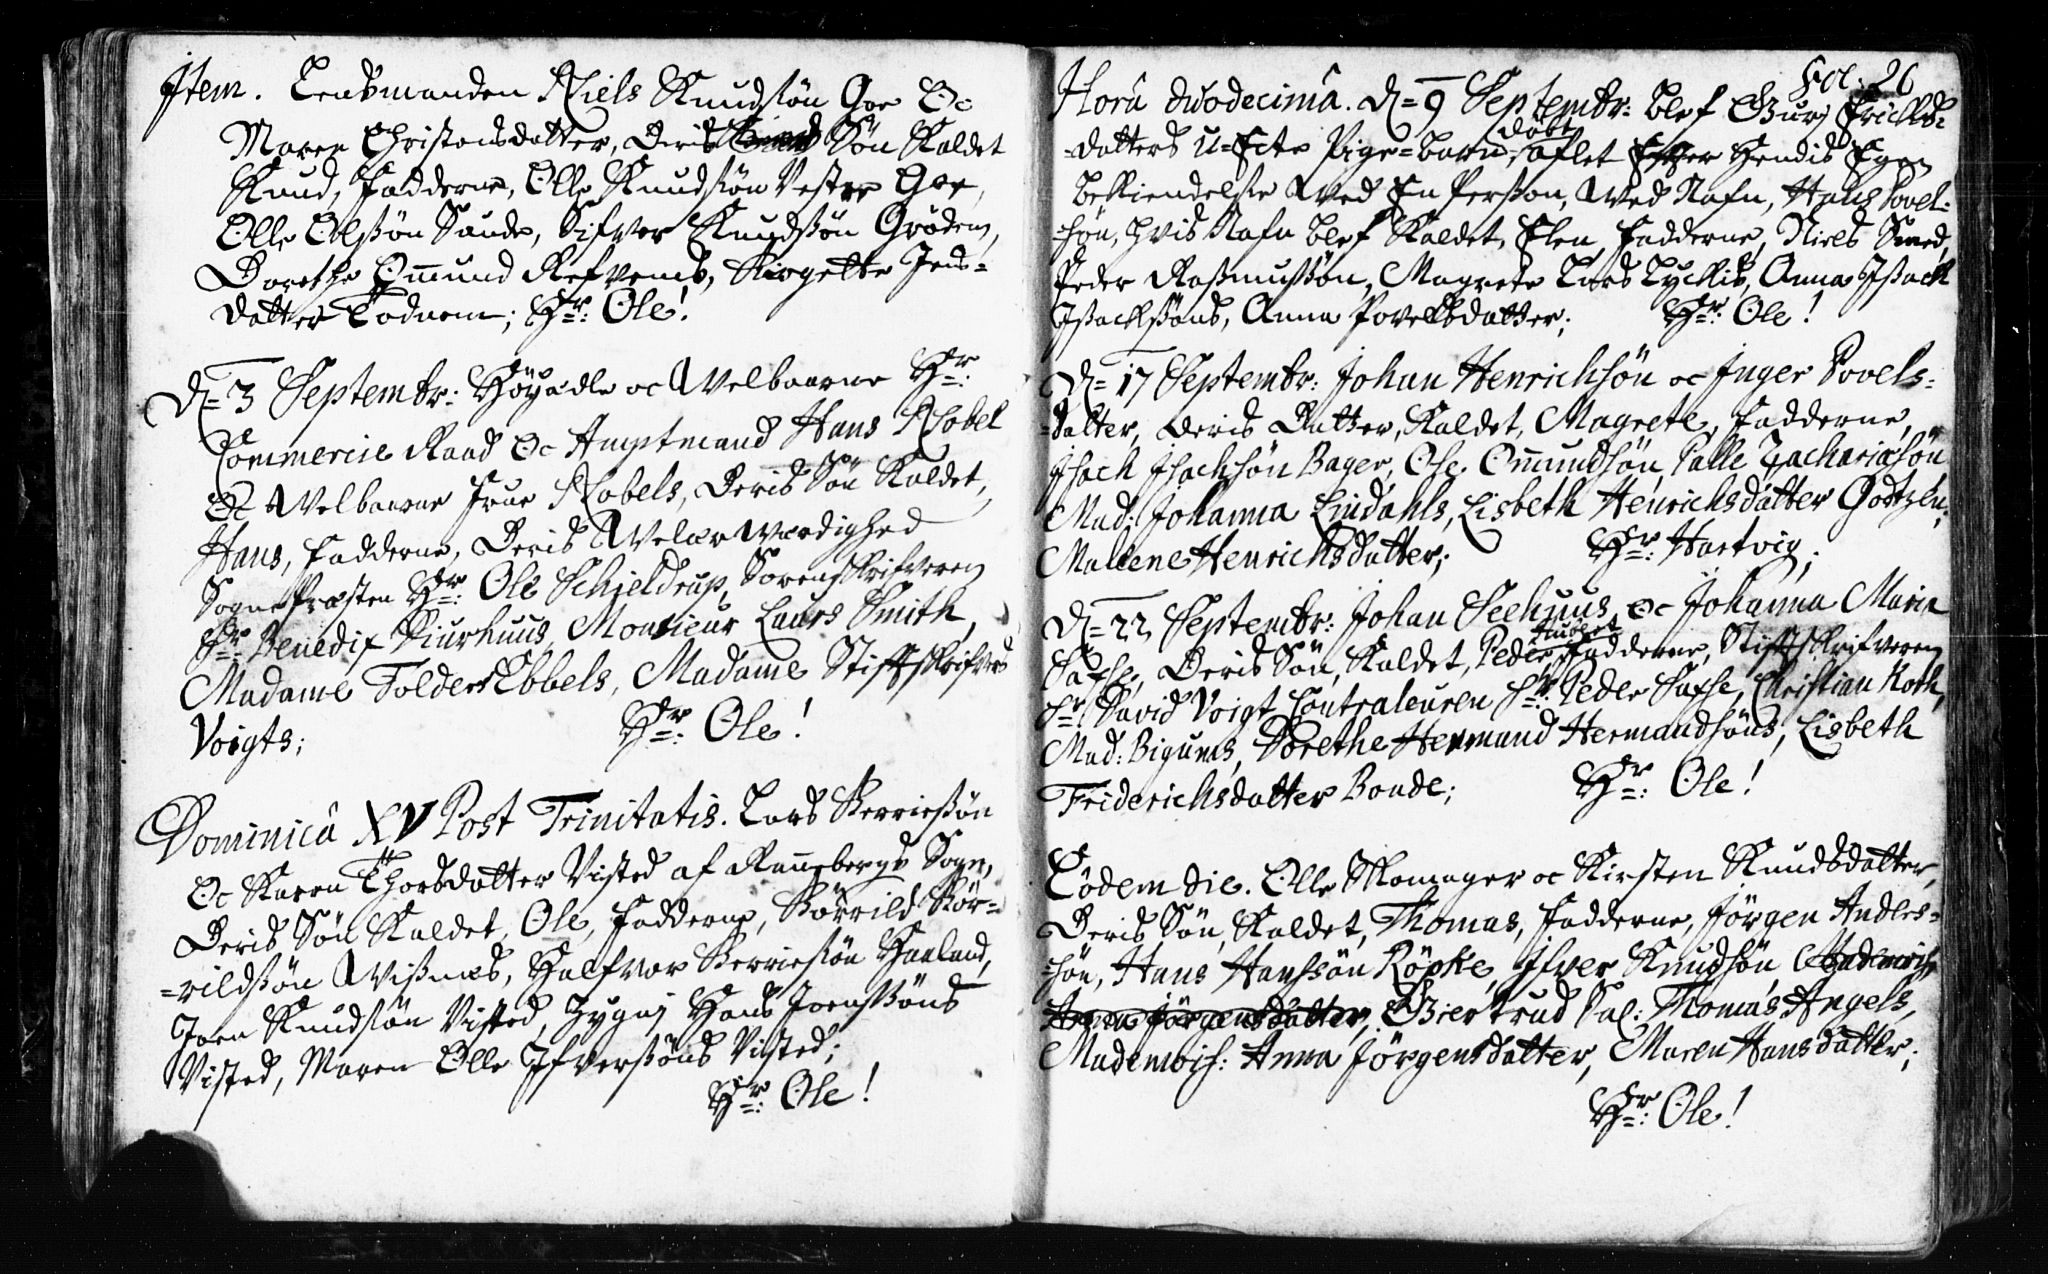 Jtem. Lensmanden Niels Knudsøn Goe Oc
Maren Christensdatter, Deris Søn Kaldet
Knud, Fadderne, Olle Knudsøn Vestre Goe,
Olle Olssøn Sande, Sifver Knudssøn Grødem,
Dorethe Omund Refvems, Birgette Jens-
datter Todnem; Hr: Ole!
D= 3 Septembr: Høyædle oc Welbaarne Hr:
Commercie Raad Oc Amptmand Hans Nobel
Oc Welbaarne Frue Nobels, Deris Søn Kaldet,
Hans, Fadderne, Deris Welærwærdighed
Sogne Præsten Hr: Ole Schjeldrup, Sorenskrifveren
Sr: Benedix Kiurhuus, Monsieur Laurs Smith,
Madame Tolder Ebbels, Madame Stiftskrifver
Voigts; Hr: Ole!
Dominicâ XV Post Trinitatis. Lars Berriessøn
Oc Karen Thorsdatter Visted af Rannebergs Sogn,
Deris Søn Kaldet, Ole, Fadderne, Børrild Bør-
=rildssøn Wisnes, Halfvor Berriesøn Haaland,
Joen Knudsøn Visted, Hans Joenssøns
Visted, Maren Olle Jfverssøns Visted;
Hr: Ole!
Fol: 26
Horâ duodecimâ. D= 9 Septembr: blef Guri Erichs-
døbt
=datters U=Ecte Pige=barn, aflet Efter Hendis Egen
bekiendelse Wed En Person, Wed Nafn, Hans Povel-
=søn, Hvis Nafn blef Kaldet, Elen, Fadderne, Niels Smed,
Peder Rasmussøn, Magrete Lars Lyckis, Anna Jsack
Jsackssøns, Anna Povelsdatter; Hr: Ole!
D= 17 Septembr: Johan Henrichsøn oc Jnger Povels-
=datter, Deris Datter, Kaldet, Magrete, Fadderne,
Jsach Jsachsøn Bager, Ole Omundsøn, Palle Zachariæsøn
Mad: Johanna Lindahls, Lisbeth Henrichsdatter Gørtzen;
Mallene Henrichsdatter; Hr: Hartvig;
D= 22 Septembr: Johan Seehuus, oc Johanna Marie
Saxse, Deris Søn, Kaldet, Peder, Fadderne, Stiftskrifveren
Sr: David Voigt, Contraleuren Sr: Peder Saxse, Christian Roth,
Mad: Bigums, Dorethe Hermand Hermandsøns, Lisbeth
Friderichsdatter Bonde; Hr: Ole!
Eôdem die. Olle Skomager oc Kirsten Knudsdatter,
Deris Søn, Kaldet, Thomas, Fadderne, Jørgen Andres-
=søn, Hans Hanssøn Røpke, Jfver Knudsøn
Giertrud Sal: Thomas Angels,
Mademois: Anna Jørgensdatter, Maren Hansdatter;
Hr: Ole!